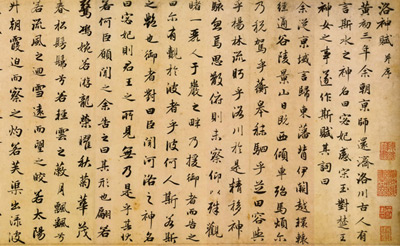 洛神賦 并序
黃初三年余朝京師還濟洛川古人有
言斯水之神名曰宓妃感宋玉對楚王
神女之事遂作斯賦其詞曰
余從京域言歸東藩背伊闕越轘轅
經通谷陵景山日既西傾車殆馬煩尔
乃稅駕乎蘅皋秣駟乎芝田容與
乎楊林流眄乎洛川於是精移神
駭忽焉思散俯則未察仰以殊觀
睹一麗人于巖之畔乃援御者而告之
曰尔有覿於彼者乎彼何人斯若斯
之豔也御者對曰臣聞河洛之神名
曰宓妃則君王之所見無乃是乎其狀
若何臣願聞之余告之曰其形也翩若
驚鴻婉若遊龍榮曜秋菊華茂
春松髣髴兮若輕雲之蔽月飄飄兮
若流風之迴雪遠而望之皎若太陽
升朝霞迫而察之灼若芙蕖出淥波